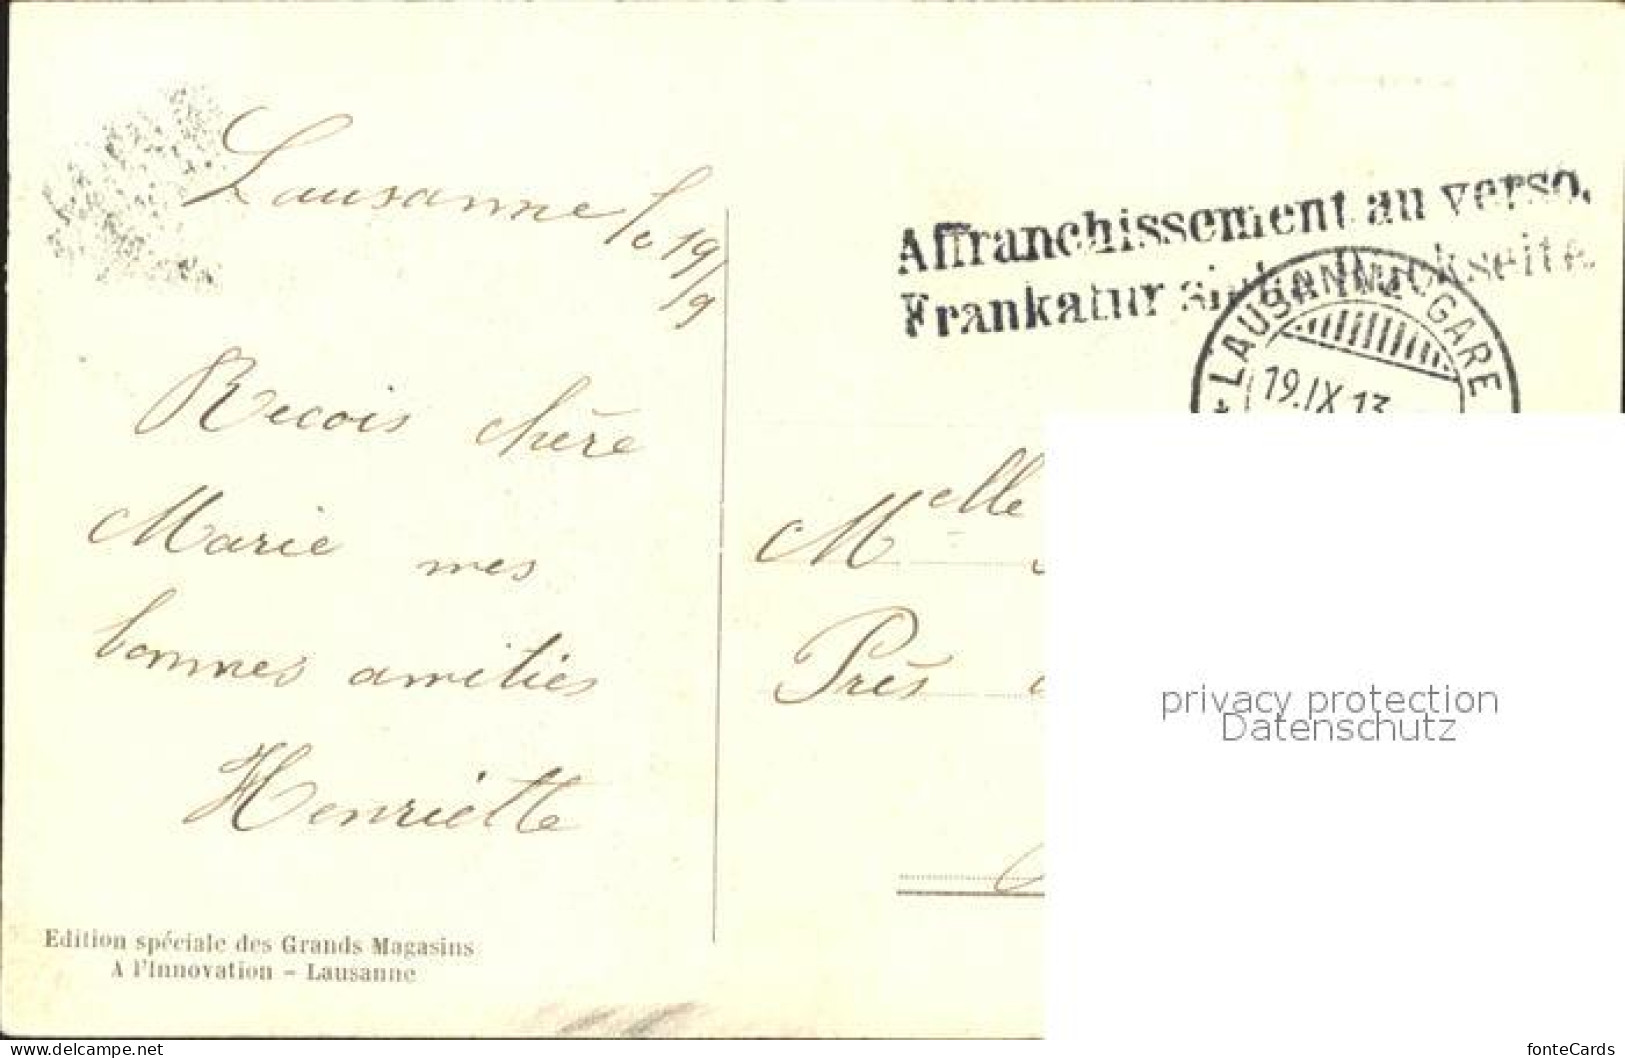 Lausanne le 19/9
Recois chère
Marie mes
bonnes amitiés
Henriette
Edition spéciale des Grands Magasins
A l'Innovation - Lausanne
Affranchissement au verso.
Frankatur siehe Rückseite.
LAUSANNE GARE
19.IX.13
Melle
Près
privacy protection
Datenschutz
https://www.delcampe.net
fonteCards